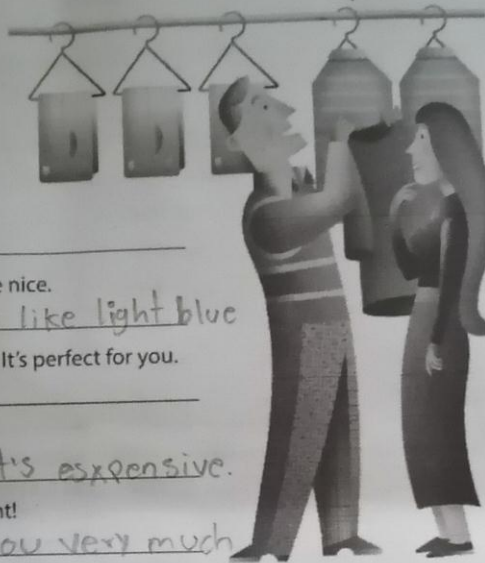 nice.
like light blue
It's perfect for you.
t's esxpensive.
nt!
ou very much